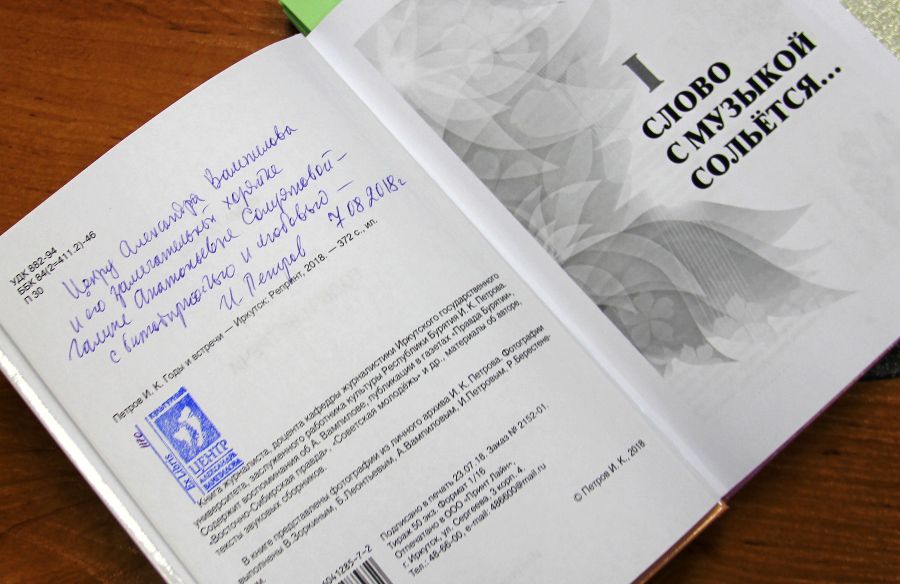 УДК 882-94
ББК 84(2=411.2)-46
П 30
Центру Александра Вампилова
и его замечательной хозяйке
Галине Анатольевне Солуяновой –
с благодарностью и любовью –
И Петров 7 08 2018 г
Петров И. К. Годы и встречи — Иркутск: Репринт, 2018. — 372 с., ил.
Книга журналиста, доцента кафедры журналистики Иркутского государственного
университета, заслуженного работника культуры Республики Бурятия И. К. Петрова.
Содержит воспоминания об А. Вампилове, публикации в газетах «Правда Бурятии»,
«Восточно-Сибирская правда», «Советская молодёжь» и др., материалы об авторе,
тексты звуковых сборников.
В книге представлены фотографии из личного архива И. К. Петрова. Фотографии
выполнены В. Зоркиным, Б. Леонтьевым, А. Вампиловым, И.Петровым, Р.Берестене-
Подписано в печать 23.07.18. Заказ № 2152-01.
Тираж 50 экз. Формат 1/16
Отпечатано в ООО «Принт Лайн»,
г. Иркутск, ул. Сергеева, 3 корп. 4,
Тел.: 48-66-00, e-mail: 486600@mail.ru
6041285-7-2
© Петров И. К. 2018
Ex Libris
КУЛЬТУРНЫЙ
ЦЕНТР
АЛЕКСАНДРА
ВАМПИЛОВА
I
СЛОВО
С МУЗЫКОЙ
СОЛЬЁТСЯ...